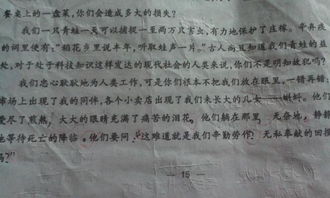 餐桌上的一盘菜,你们会造成多大的损失?
我们一只青蛙一天可以捕捉一至两万只害虫,有力地保护了庄稼。辛弃疾
的词里便有:"稻花乡里说丰年,听取蛙声一片。"古人尚且知道我们青蛙的益
处,对于处于科技知识这样发达的现代社会的人类来说,你们不是明知故犯吗?
我们忠心耿耿地为人类工作,可是你们根本不把我们放在眼里,一错再错,
市场上出现了我的同伴,各个小卖店出现了我们未长大的儿女——蝌蚪。他们
受尽了煎熬,大大的眼睛充满了痛苦的泪花。他们躺在那里,无奈地,静静
地等待死亡的降临。他们要问:这难道就是我们辛勤劳作,无私奉献的回报
吗?"
— 15 —